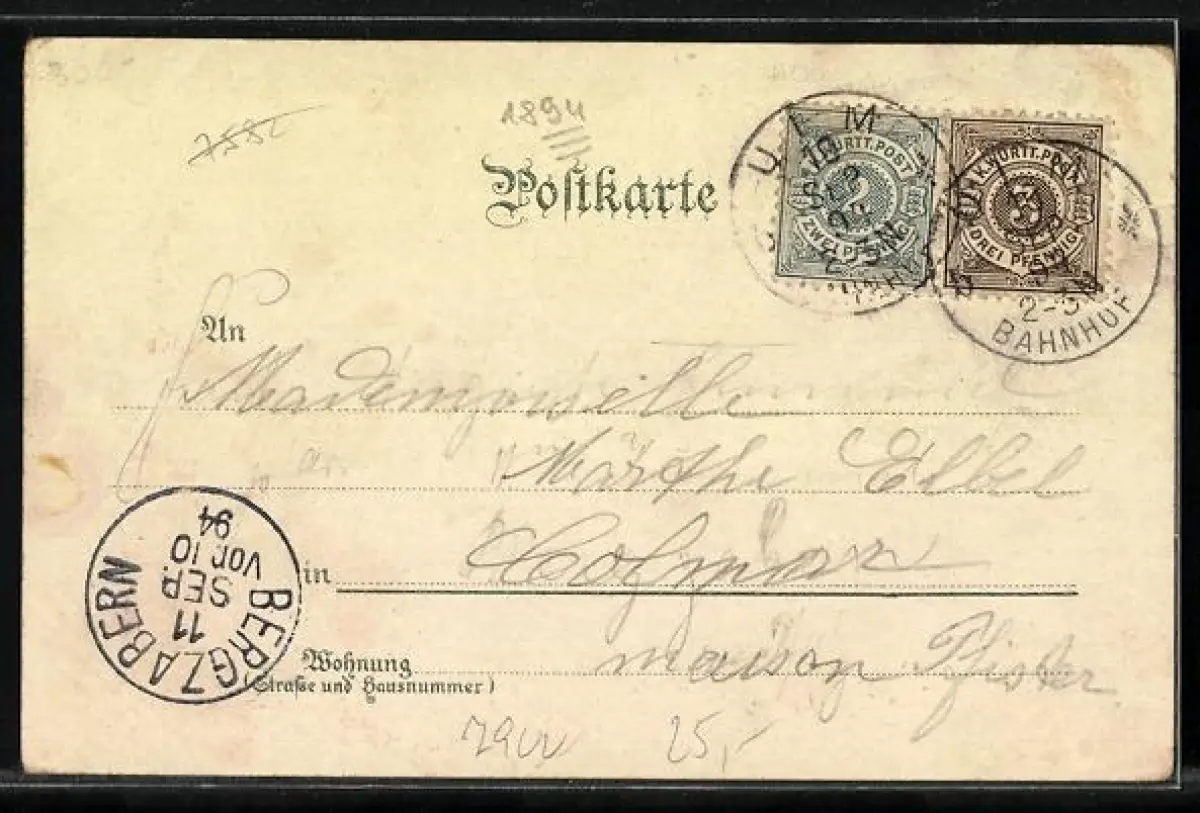 7582
1894
Postkarte
ULM
10
SEP
94
2-3N
BAHNHOF
K.WÜRTT.POST
2
ZWEI PFENNIG
K.WÜRTT.POST
3
DREI PFENNIG
2-3N
BAHNHOF
An
Mademoiselle
Märthe Elbel
in Colmar
Wohnung maison Pfister
(Straße und Hausnummer)
BERGZABERN
11
SEP.
VOR.10
94
25,-